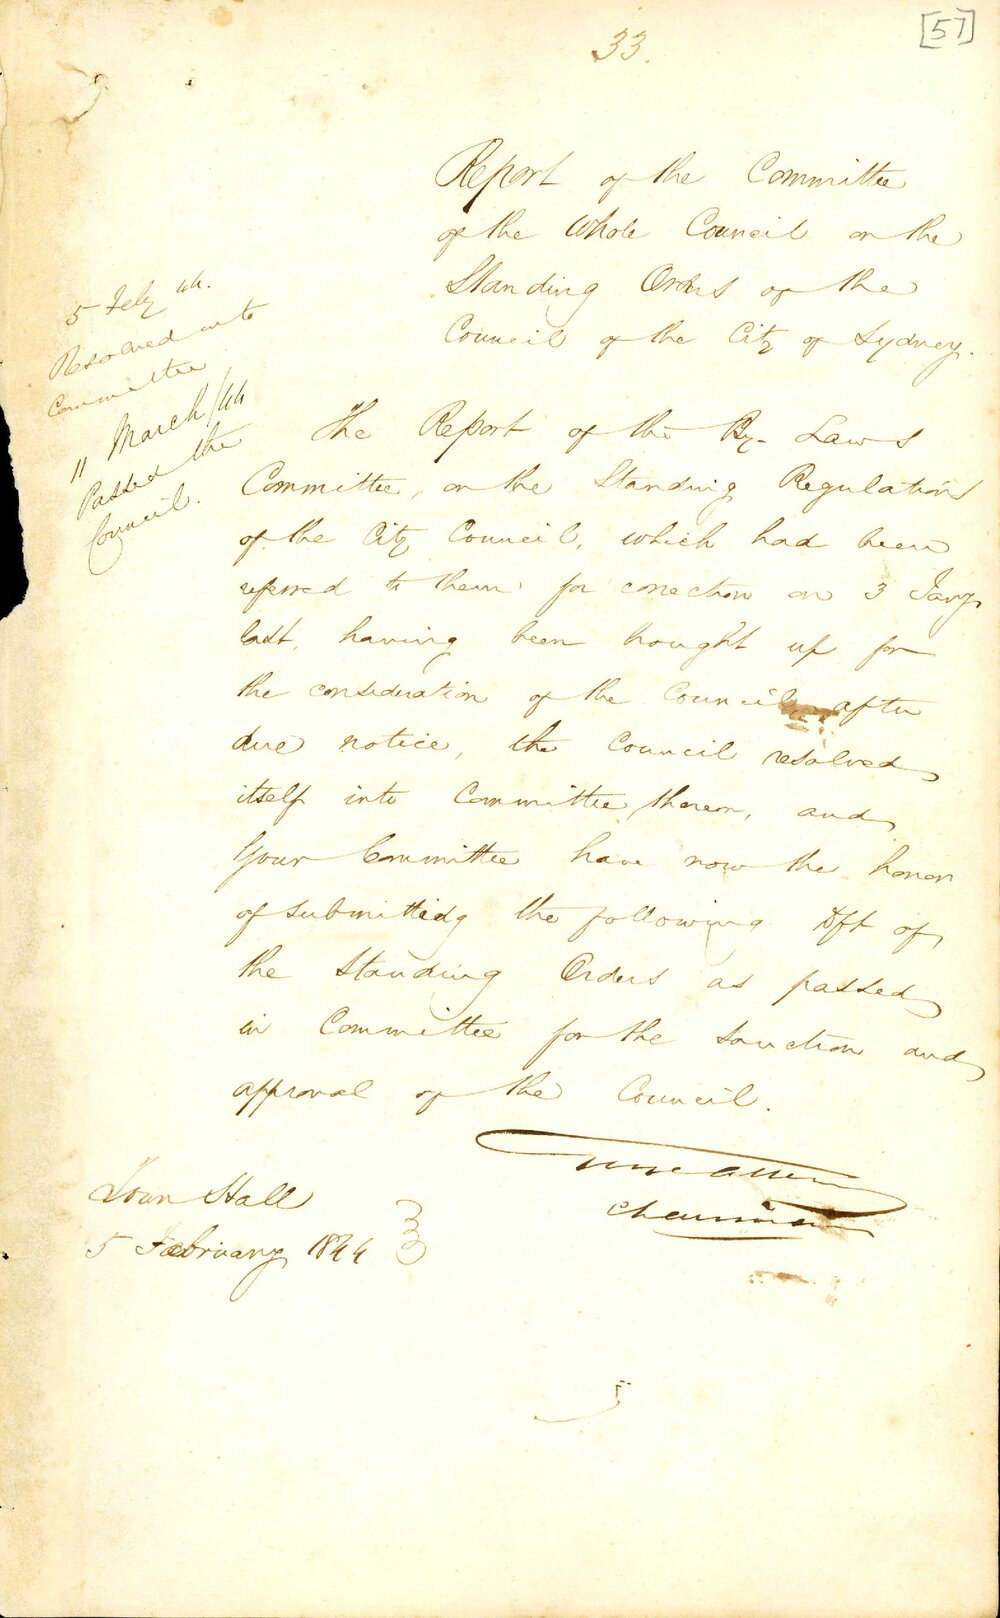 [57]
33.
Report of the Committee
of the Whole Council on the
Standing Orders of the
Council of the City of Sydney.
5 Feby 44.
Resolved into
Committee
11 March/44
Passed the
Council.
The Report of the By-Laws
Committee, on the Standing Regulations
of the City Council, which had been
referred to them for correction on 3 Jany
last, having been brought up for
the consideration of the Council, after
due notice, the Council resolved
itself into Committee thereon, and
Your Committee have now the honor
of submitting the following Dft of
the Standing Orders as passed
in Committee for the sanction and
approval of the Council.
Chairman
Town Hall
5 February 1844
5